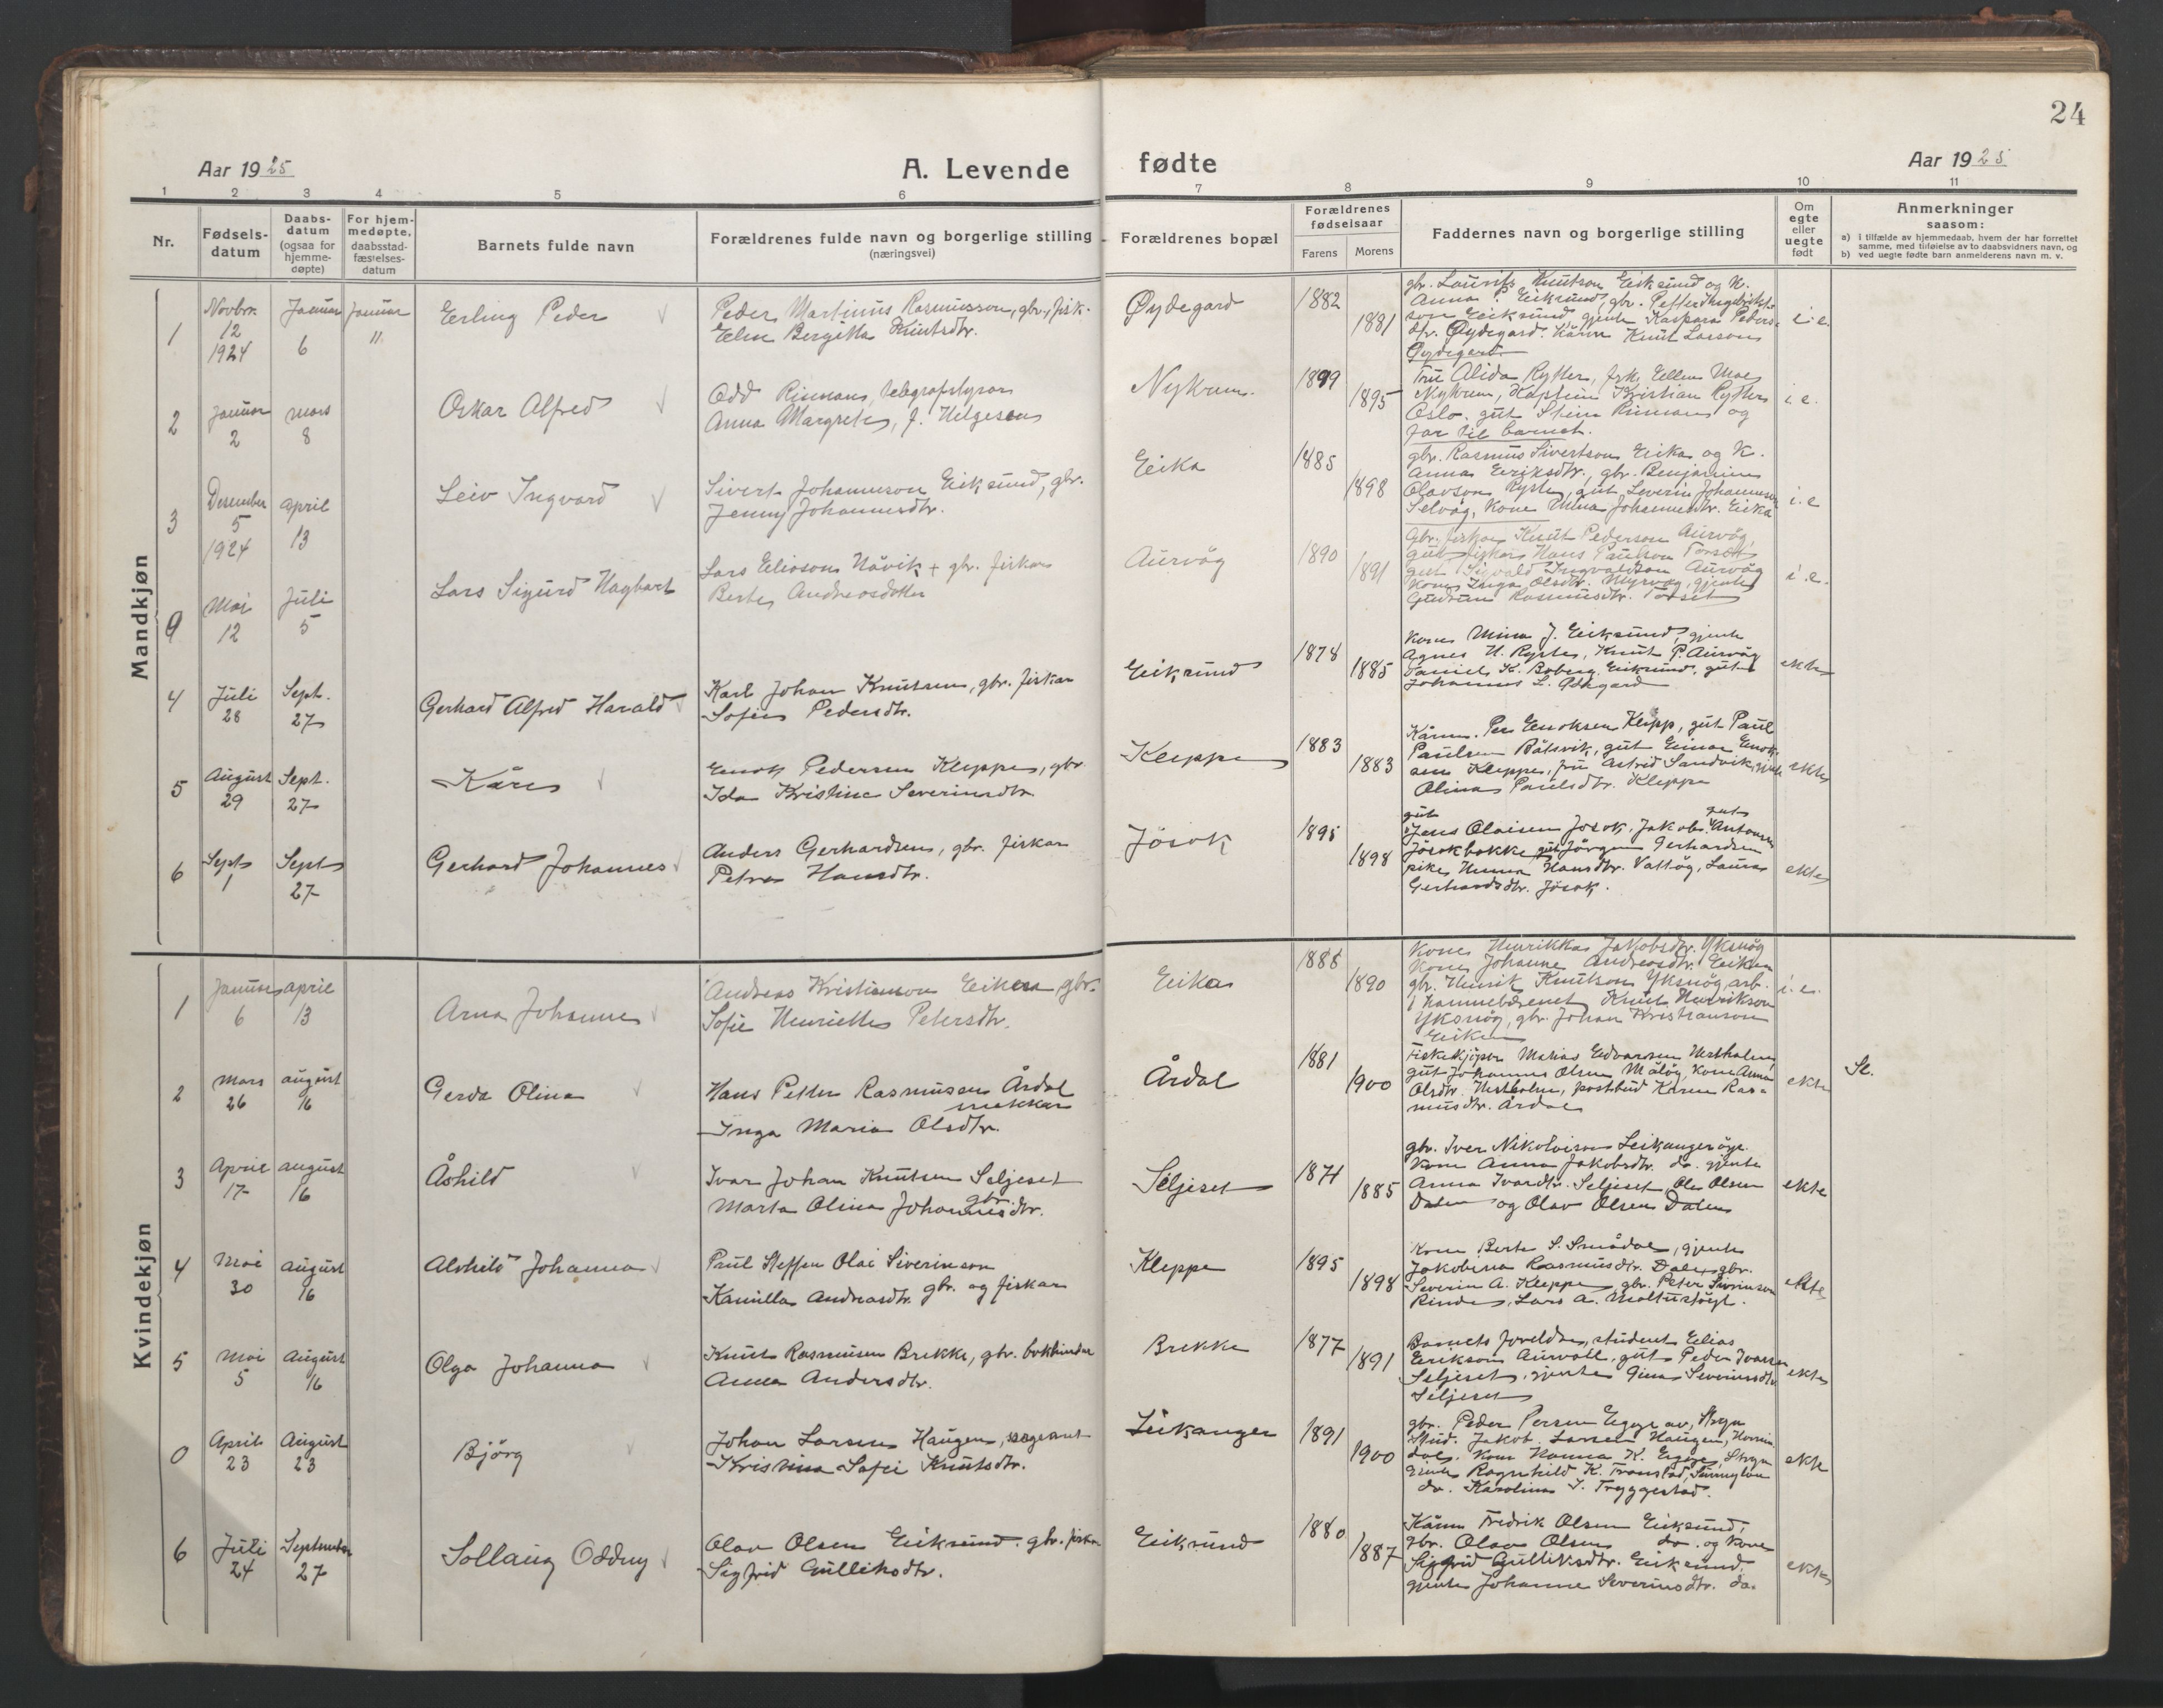 24
Aar 1925
A. Levende fødte
Aar 1925
1 2 3 4 5 6 7 8 9 10 11
Nr.
Fødselsdatum
Daabsdatum (ogsaa for hjemmedøpte)
For hjemmedøpte, daabsstadfæstelsesdatum
Barnets fulde navn
Forældrenes fulde navn og borgerlige stilling
(næringsvei)
Forældrenes bopæl
Forældrenes fødselsaar
Farens Morens
Faddernes navn og borgerlige stilling
Om egte eller uegte født
Anmerkninger
saasom:
a) i tilfælde av hjemmedaab, hvem der har forrettet
samme, med tilføielse av to daabsvidners navn, og
b) ved uegte fødte barn anmelderens navn m. v.
Mandkjøn
1
Novbr. 12 1924
Januar 6
Januar 11
Erling Peder
Peder Martinus Rasmusson, gbr., fisk.
Elen Bergitta Knutsdtr.
Øydegard
1882
1881
gbr. Laurits Knutson Eiksund og K.
Anna P. Eiksund, gbr.
son Eiksund gjente Kaspara Peders-
dtr. Øydegard. Kårm Knut Larson
Øydegard
i. e.
2
Januar 2
mars 8
Oskar Alfred
Odd Rinnan, telegrafstyrar
Anna Margrete, f. Helgesen
Nykrem.
1899
1895
Fru Alida Rytter, frk. Ellen Moe
Nykrem, Kaptein Kristian Rytter
Oslo. gut Stein Rinnan og
far til barnet.
i. e.
3
Desember 5 1924
april 13
Leiv Ingvard
Sivert Johannson Eiksund, gbr.
Jenny Johannesdtr.
Eika
1885
1898
gbr. Rasmus Sivertson Eika og K.
Anna Eriksdtr., gbr. Benjamin
Olavson Ryste, gut Severin Johanneson
Selvåg, Kone Mina Johannesdtr. Eika
i. e
9
Mai 12
Juli 5
Lars Sigurd Hagbart
Lars Eliason Håvik + gbr. fiskar
Berte Andreasdotter
Aurvåg
1890
1891
Gbr. fiskar Knut Pederson Aurvåg,
gut fiskar Hans Paulson Torset
gut Sigvald Ingvaldson Aurvåg
Kone Inga Olsdtr. Myrvåg, gjente
Gudrun Rasmusdtr. Torset
i. e.
4
Juli 28
Sept. 27
Gerhard Alfred Harald
Karl Johan Knutsen, gbr. fiskar
Sofie Pedersdtr.
Eiksund
1878
1885
Kone Mina J. Eiksund, gjente
Agnes H. Ryste, Knut P. Aurvåg
Daniel K. Boberg, Eiksund, gut
Johannes L.
ekte
5
August 29
Sept. 27
Kåre
Enok Pedersen Kleppe, gbr
Ida Kristine Severinsdtr.
Kleppe
1883
1883
Kårm. Per Enoksen Klepp, gut Paul
Paulsen Båtsvik, gut Einar Enok-
sen Kleppe, fru Astrid Sandvik, gjente
Olina Paulsdtr. Kleppe
ekte
6
Sept 1
Sept 27
Gerhard Johannes
Anders Gerhardsen, gbr. fiskar
Petra Hansdtr.
Jösok
1895
1898
gut gut
Jens Olaisen Jösok, Jakob Antonsen
Jösokbakke gut Jörgen Gerhardsen
pike Hanna Hansdtr. Vattöy, Laura
Gerhardsdtr. Jösok.
ekte
Kvindekjøn
1
Januar 6
april 13
Arna Johanne
Andreas Kristianson Eiken gbr.
Sofie Henriette Petersdtr.
Eika
1888
1890
Kone Henrikka Jakobsdtr. Yksnöy
Kone Johanne Andreasdtr. Eiken
gbr. Henrik Knutson Yksnöy, arb.
Knut Henrikson
Yksnöy, gbr. Johan Kristianson
Eiken
i. e.
2
Mars 26
august 16
Gerda Olina
Hans Petter Rasmusen Årdal
Inga Marie Olsdtr.
Årdal
1881
1900
Fiskekjöpar Matias Edvardsen Nestholm,
gut Johannes Olsen Målöy, Kone Anna
Olsdtr. Nestholm, postbud Karen Ras-
musdtr. Årdal
ekte
3
April 17
august 16
Åshild
Ivar Johan Knutsen Seljeset
gbr.
Marta Olina Johannesdtr.
Seljeset
1871
1885
gbr. Iver Nikolaison Leikangeröye
Kone Anna Jakobsdtr. do. gjente
Anna Ivardtr. Seljeset, Ole Olsen
Dalen og Olav Olsen Dalen
ekte
4
Mai 30
august 16
Alvhild Johanna
Paul Steffen Olai Siverinson
Kamilla Andreasdtr. gbr. og fiskar
Kleppe
1895
1898
Kone Berte S. Smådal, gjente
Jakobina Rasmusdtr. Dale, gbr.
Severin A. Kleppe, gbr. Peter Siverinson
Rinde, Lars A.
ekte
5
Mai 5
August 16
Olga Johanna
Knut Rasmusen Brekke, gbr. bokbindar
Anna Andersdtr.
Brekke
1877
1891
Barnets foreldre, student Elias
Erikson Aurvoll, gut Peder Ivarsen
Seljeset, gjente Gina Severinsdtr
Seljeset
ekte
0
April 23
August 23
Björg
Johan Larsen Haugen, sergeant
Kristina Sofie Knutsdtr.
Leikanger
1891
1900
gbr. Peder Persen Eggen av, Stryn
Stud. Jakob Larsen Haugen, Hornin-
dal. Kone Hanna K. Stryn
gjente Ragnhild K. Tronstad, Sunnylven
do. Karoline J. Tryggestad.
ekte
6
Juli 24
September 27
Sollaug Oddny
Olav Olsen Eiksund. gbr. fiskar
Sigfrid Gulliksdtr.
Eiksund
1880
1887
Kårm Fredrik Olsen Eiksund,
gbr. Olav Olsen do. og Kone
Sigfrid Gulliksdtr. Eiksund
gjente Johanne Severinsdtr. do.
ekte